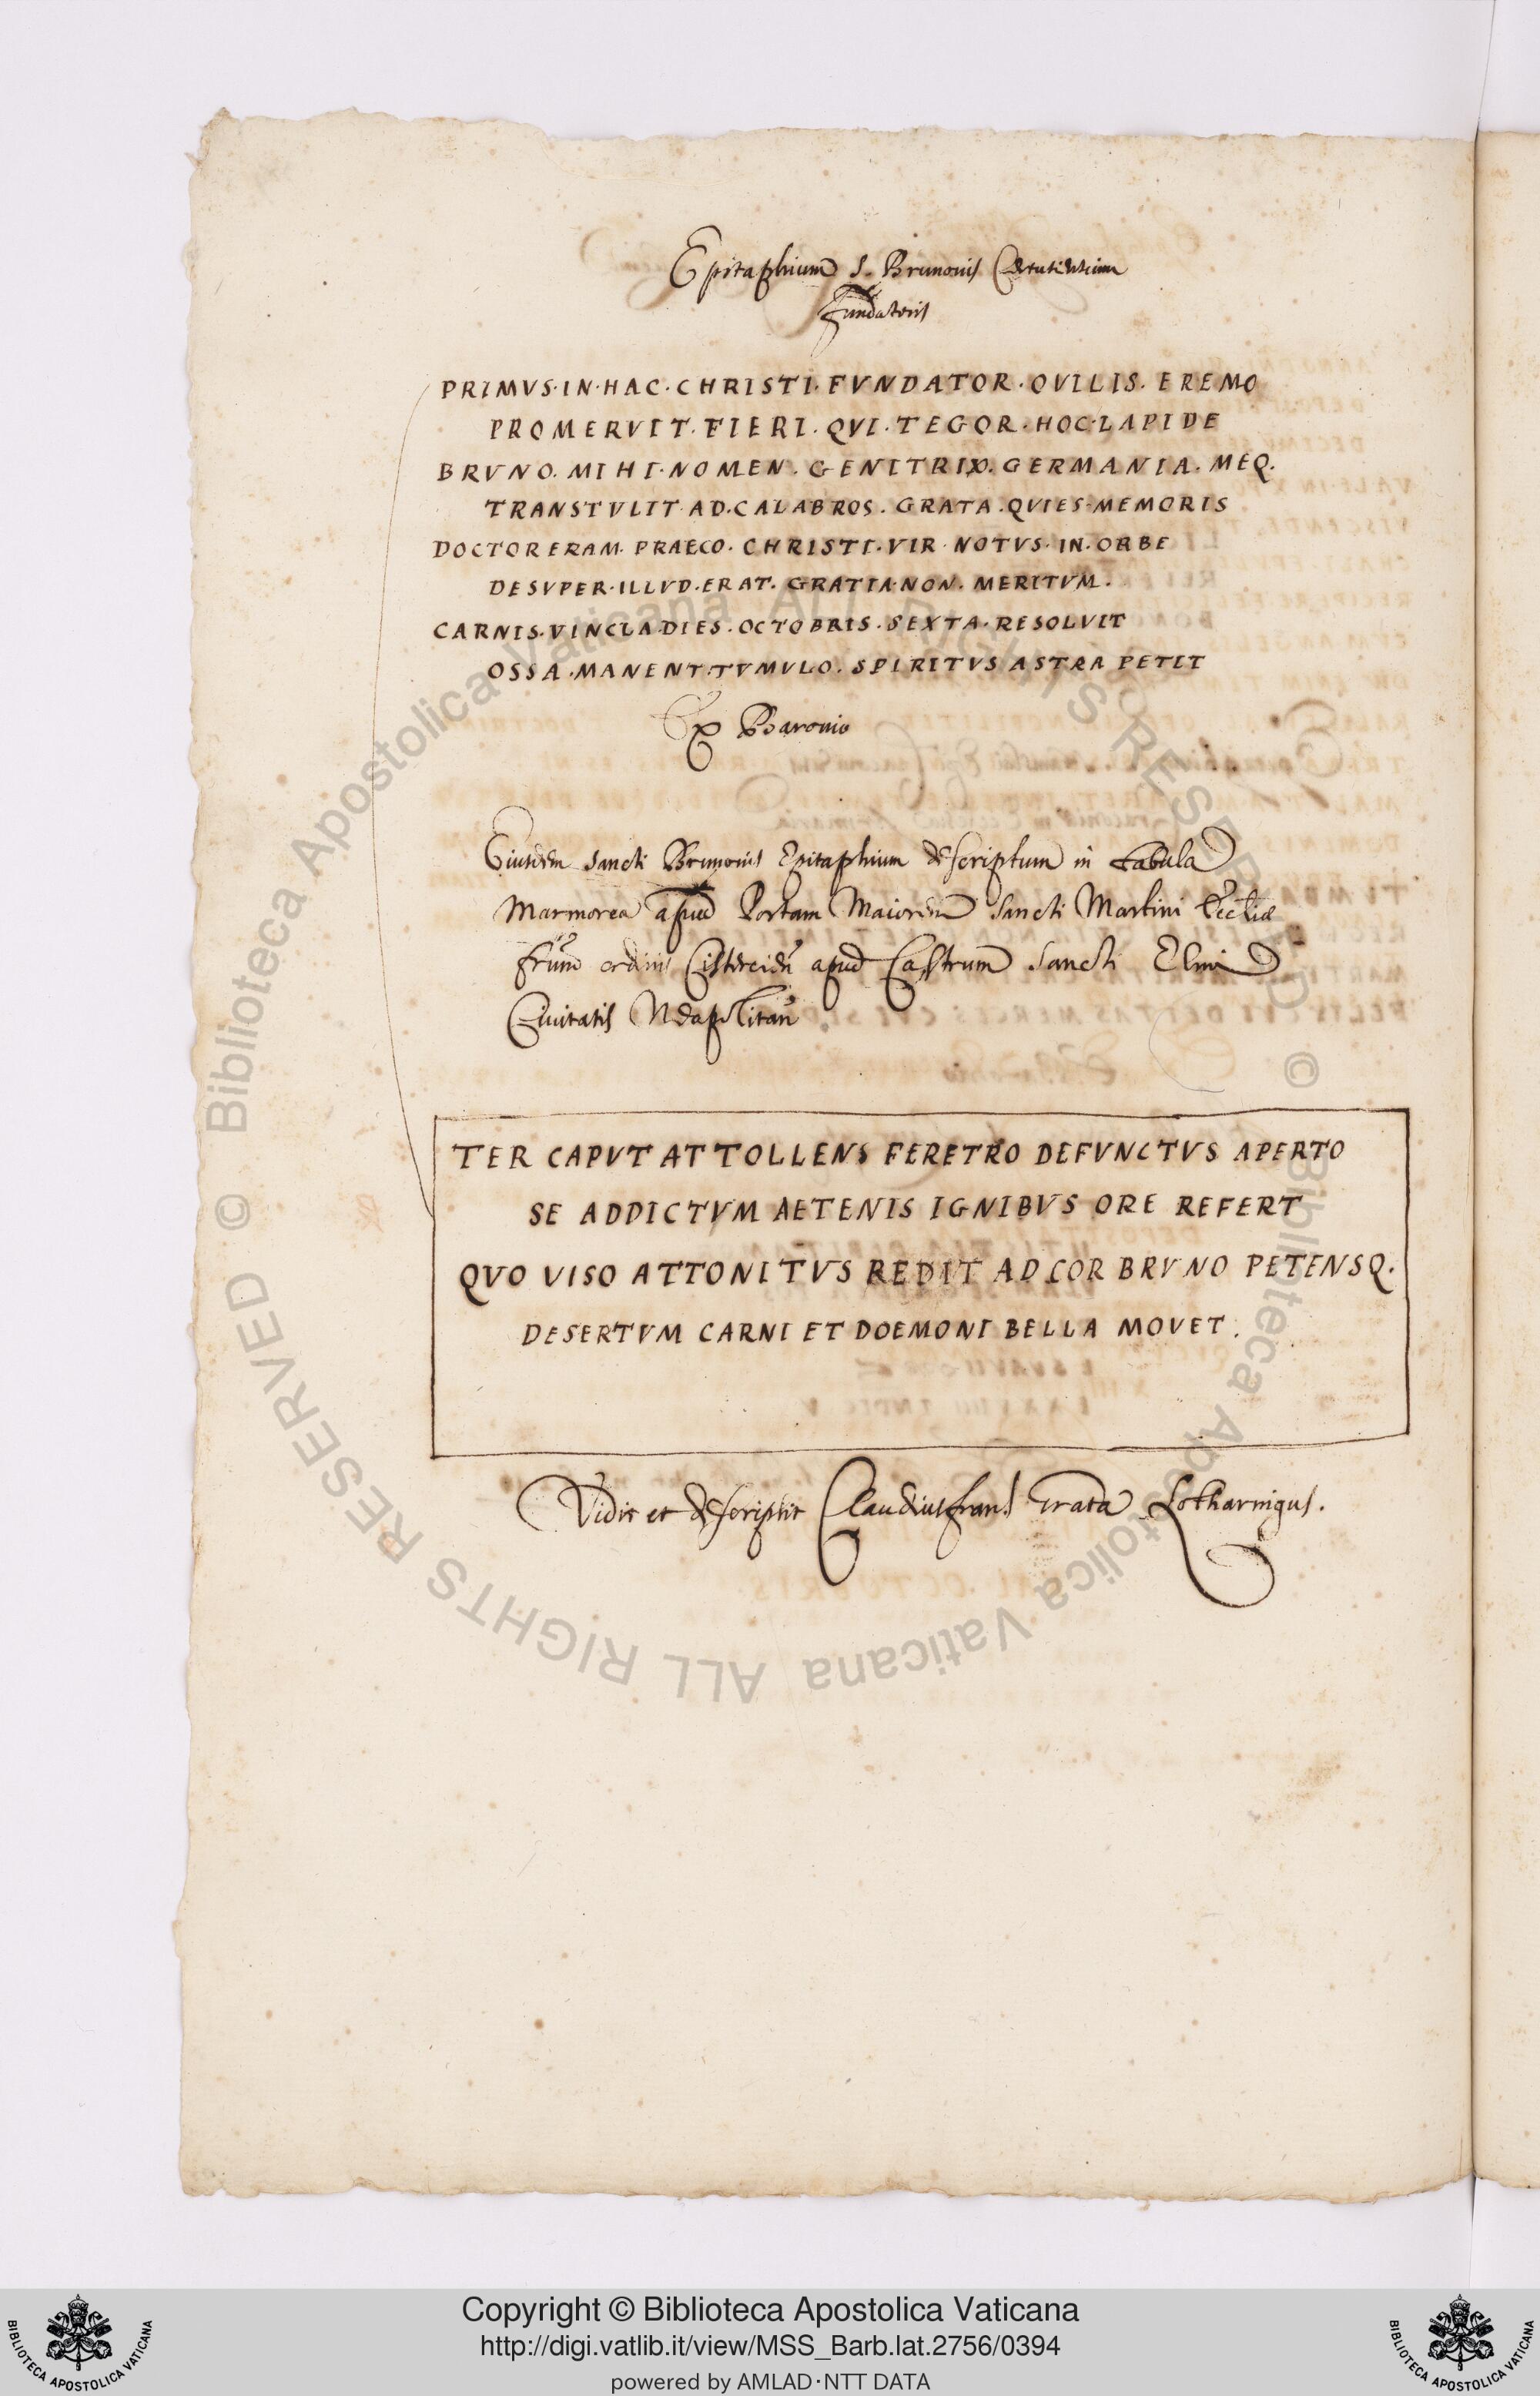 Epitaphium S. Brunonis Cartusien
fundatoris
PRIMVS·IN·HAC·CHRISTI·FVNDATOR·OVILIS·EREMO
PROMERVIT·FIERI·QVI·TEGOR·HOC·LAPIDE
BRVNO·MIHI·NOMEN·GENITRIX·GERMANIA·MEQ.
TRANSTVLIT·AD·CALABROS·GRATA·QVIES·MEMORIS
DOCTOR ERAM·PRAECO·CHRISTI·VIR·NOTVS·IN·ORBE
DESVPER·ILLVD·ERAT·GRATIA·NON·MERITVM.
CARNIS·VINCLA·DIES·OCTOBRIS·SEXTA·RESOLVIT
OSSA·MANENT·TVMVLO·SPIRITVS ASTRA PETIT
Ex Baronio
Eiusdem Sancti Brunonis Epitaphium descriptum in tabula
Marmorea apud Portam Maiorem Sancti Martini Eccliae
frum ordinis Cistercien apud Castrum Sancti Elmi
Civitatis Neapolitan.
TER CAPVT ATTOLLENS FERETRO DEFVNCTVS APERTO
SE ADDICTVM AETENIS IGNIBVS ORE REFERT
QVO VISO ATTONITVS REDIT AD COR BRVNO PETENSQ.
DESERTVM CARNI ET DOEMONI BELLA MOVET.
Vidit et descripsit Claudius frans Lotharingus.
© Biblioteca Apostolica Vaticana ALL RIGHTS RESERVED
© Biblioteca Apostolica Vaticana ALL RIGHTS RESERVED
Copyright © Biblioteca Apostolica Vaticana
http://digi.vatlib.it/view/MSS_Barb.lat.2756/0394
powered by AMLAD·NTT DATA
BIBLIOTECA APOSTOLICA VATICANA
BIBLIOTECA APOSTOLICA VATICANA